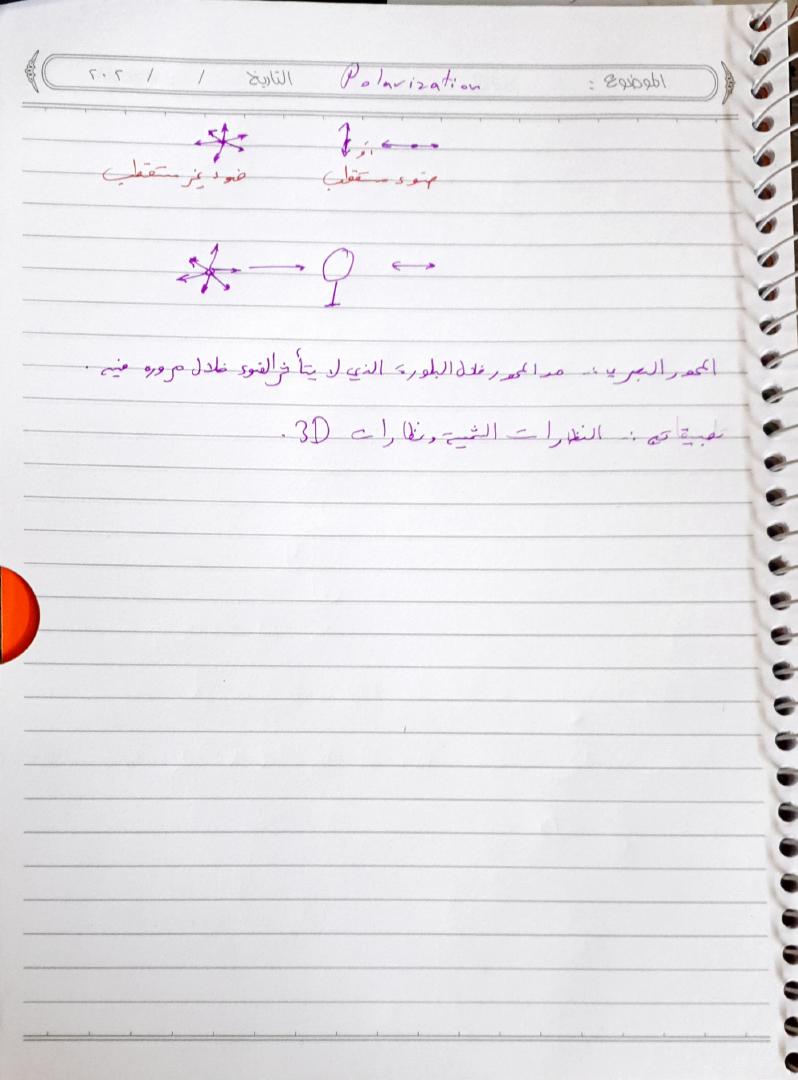 الموضوع : Polarization التاريخ / / ٢٠٢
أو
ضوء مستقطب ضوء غير مستقطب
المحور البصري :- هو المحور خلال البلورة الذي لا يتأثر الضوء خلال مروره فيه .
تطبيقاته :- النظارات الشمسية ونظارات 3D .